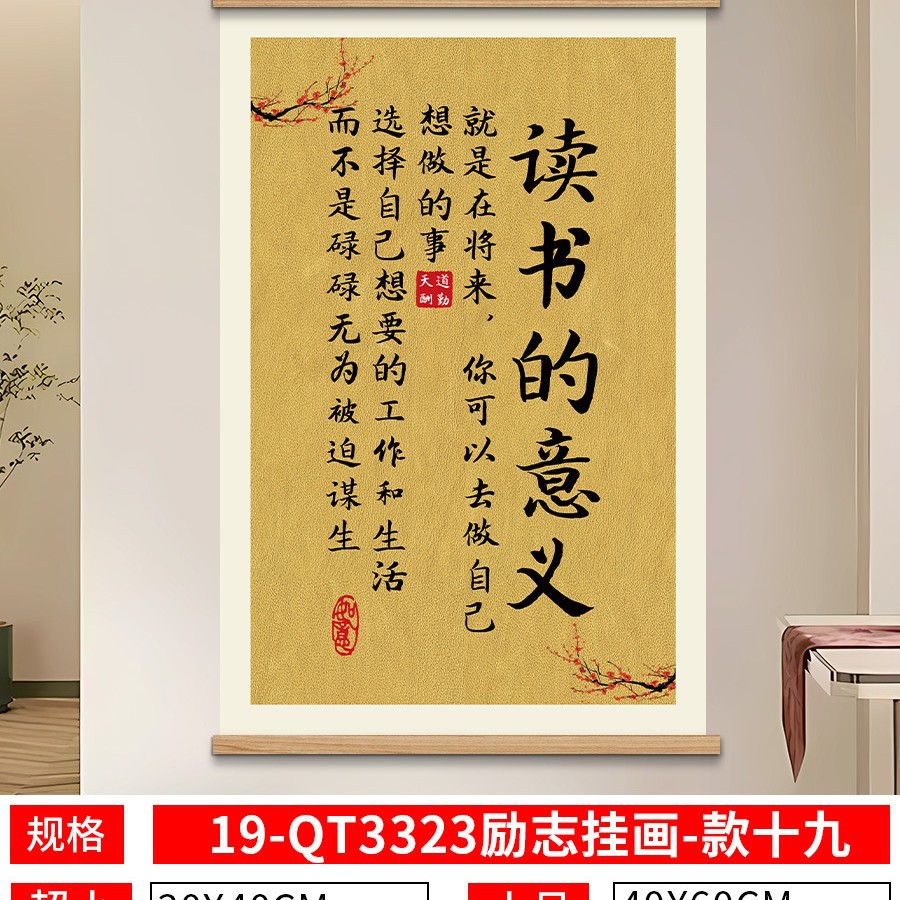 读书的意义
就是在将来，你可以去做自己
想做的事
道勤
天酬
选择自己想要的工作和生活
而不是碌碌无为被迫谋生
如意
规格
19-QT3323励志挂画-款十九
30X40CM
40X60CM